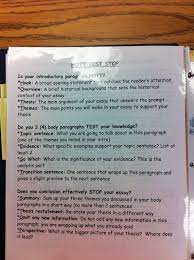 HOTT TEST STOP
Is your introductory paragraph HOTT?
*Hook: A broad opening statement that catches the reader's attention
*Overview: A brief historical background that sets the historical
context of your essay
*Thesis: The main argument of your essay that answers the prompt
*Themes: The main points you will make in your essay to support your
thesis
Do you 3 (4) body paragraphs TEST your knowledge?
*Topic sentence: What are you going to talk about in this paragraph
(one of the themes you listed above)
*Evidence: What specific examples support your topic sentence? List at
least 2
*So What: What is the significance of your evidence? This is the
analysis part
*Transition sentence: One sentence that wraps up this paragraph and
gives a slight preview to the next sentence
Does you conclusion effectively STOP your essay?
*Summary: Sum up your three themes you discussed in your body
paragraphs in a short way (no more than 2 sentences)
*Thesis restatement: Re-state your thesis in a different way
*Omit any new information: Do not add any new information in this
paragraph, you are wrapping up what you already said
*Perspective: What is the bigger picture of your thesis? Where does
it lead?